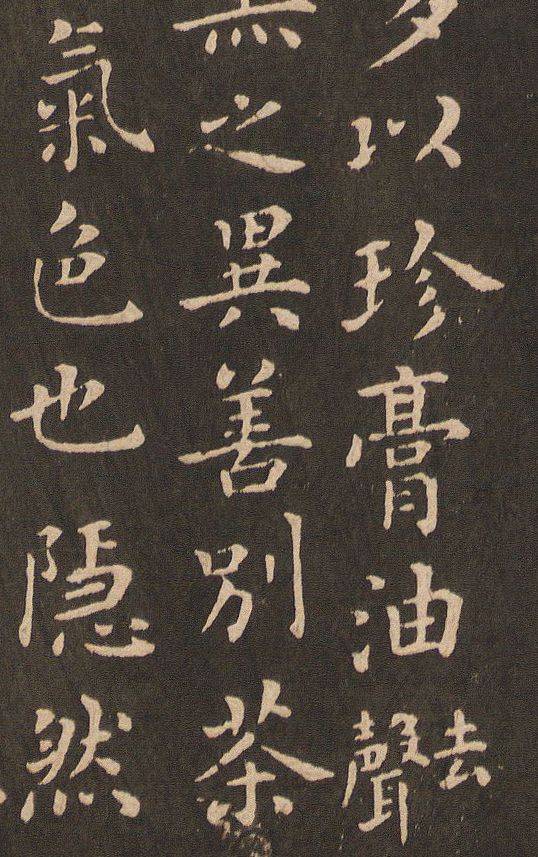 多以珍膏油去聲
之異善別茶
氣色也隱然